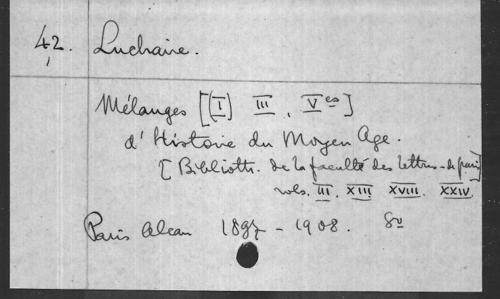 42. Luchaire.
Mélanges [(I) III, Ves]
d'Histoire du Moyen Age.
[Biblioth. de la faculté des lettres de paris]
vols. III. XIII. XVIII. XXIV.
Paris Alcan 1897 - 1908. 8º